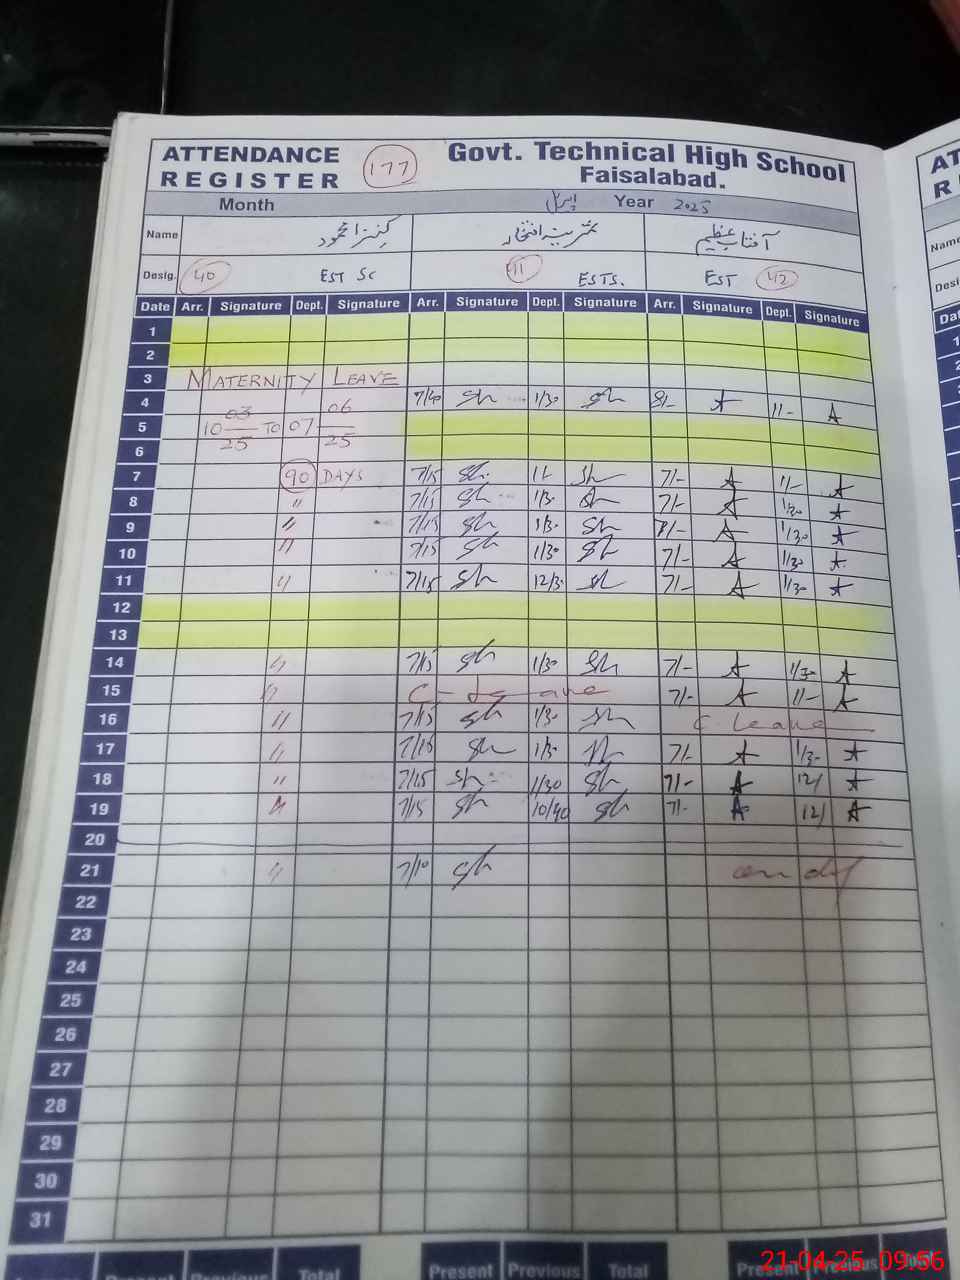 ATTENDANCE REGISTER 177 Govt. Technical High School Faisalabad.
Month اپریل Year 2025
Name کنزا محمود افتخار آفتاب عظیم
Desig. 40 EST SC 41 ESTS. EST 42
Date Arr. Signature Dept. Signature Arr. Signature Dept. Signature Arr. Signature Dept. Signature
1
2
3 MATERNITY LEAVE
4 7/40 1/30 8/- 11-
5 10 03/25 TO 07 06/25
6
7 90 DAYS 7/15 11- 7/- 11-
8 " 7/15 1/30 7/- 1/30
9 " 7/15 1/30 7/- 1/30
10 " 7/15 1/30 7/- 1/30
11 " 7/15 12/30 7/- 1/30
12
13
14 " 7/15 1/30 7/- 1/30
15 " C-Leave 7/- 11-
16 " 7/15 1/30 C Leave
17 " 7/15 1/30 7/- 1/30
18 " 7/15 1/30 7/- 12/
19 " 7/15 10/40 7/- 12/
20
21 " 7/10 on dy
22
23
24
25
26
27
28
29
30
31
Present Previous Total Present Previous Total Present Previous Total
21-04-25 09:56